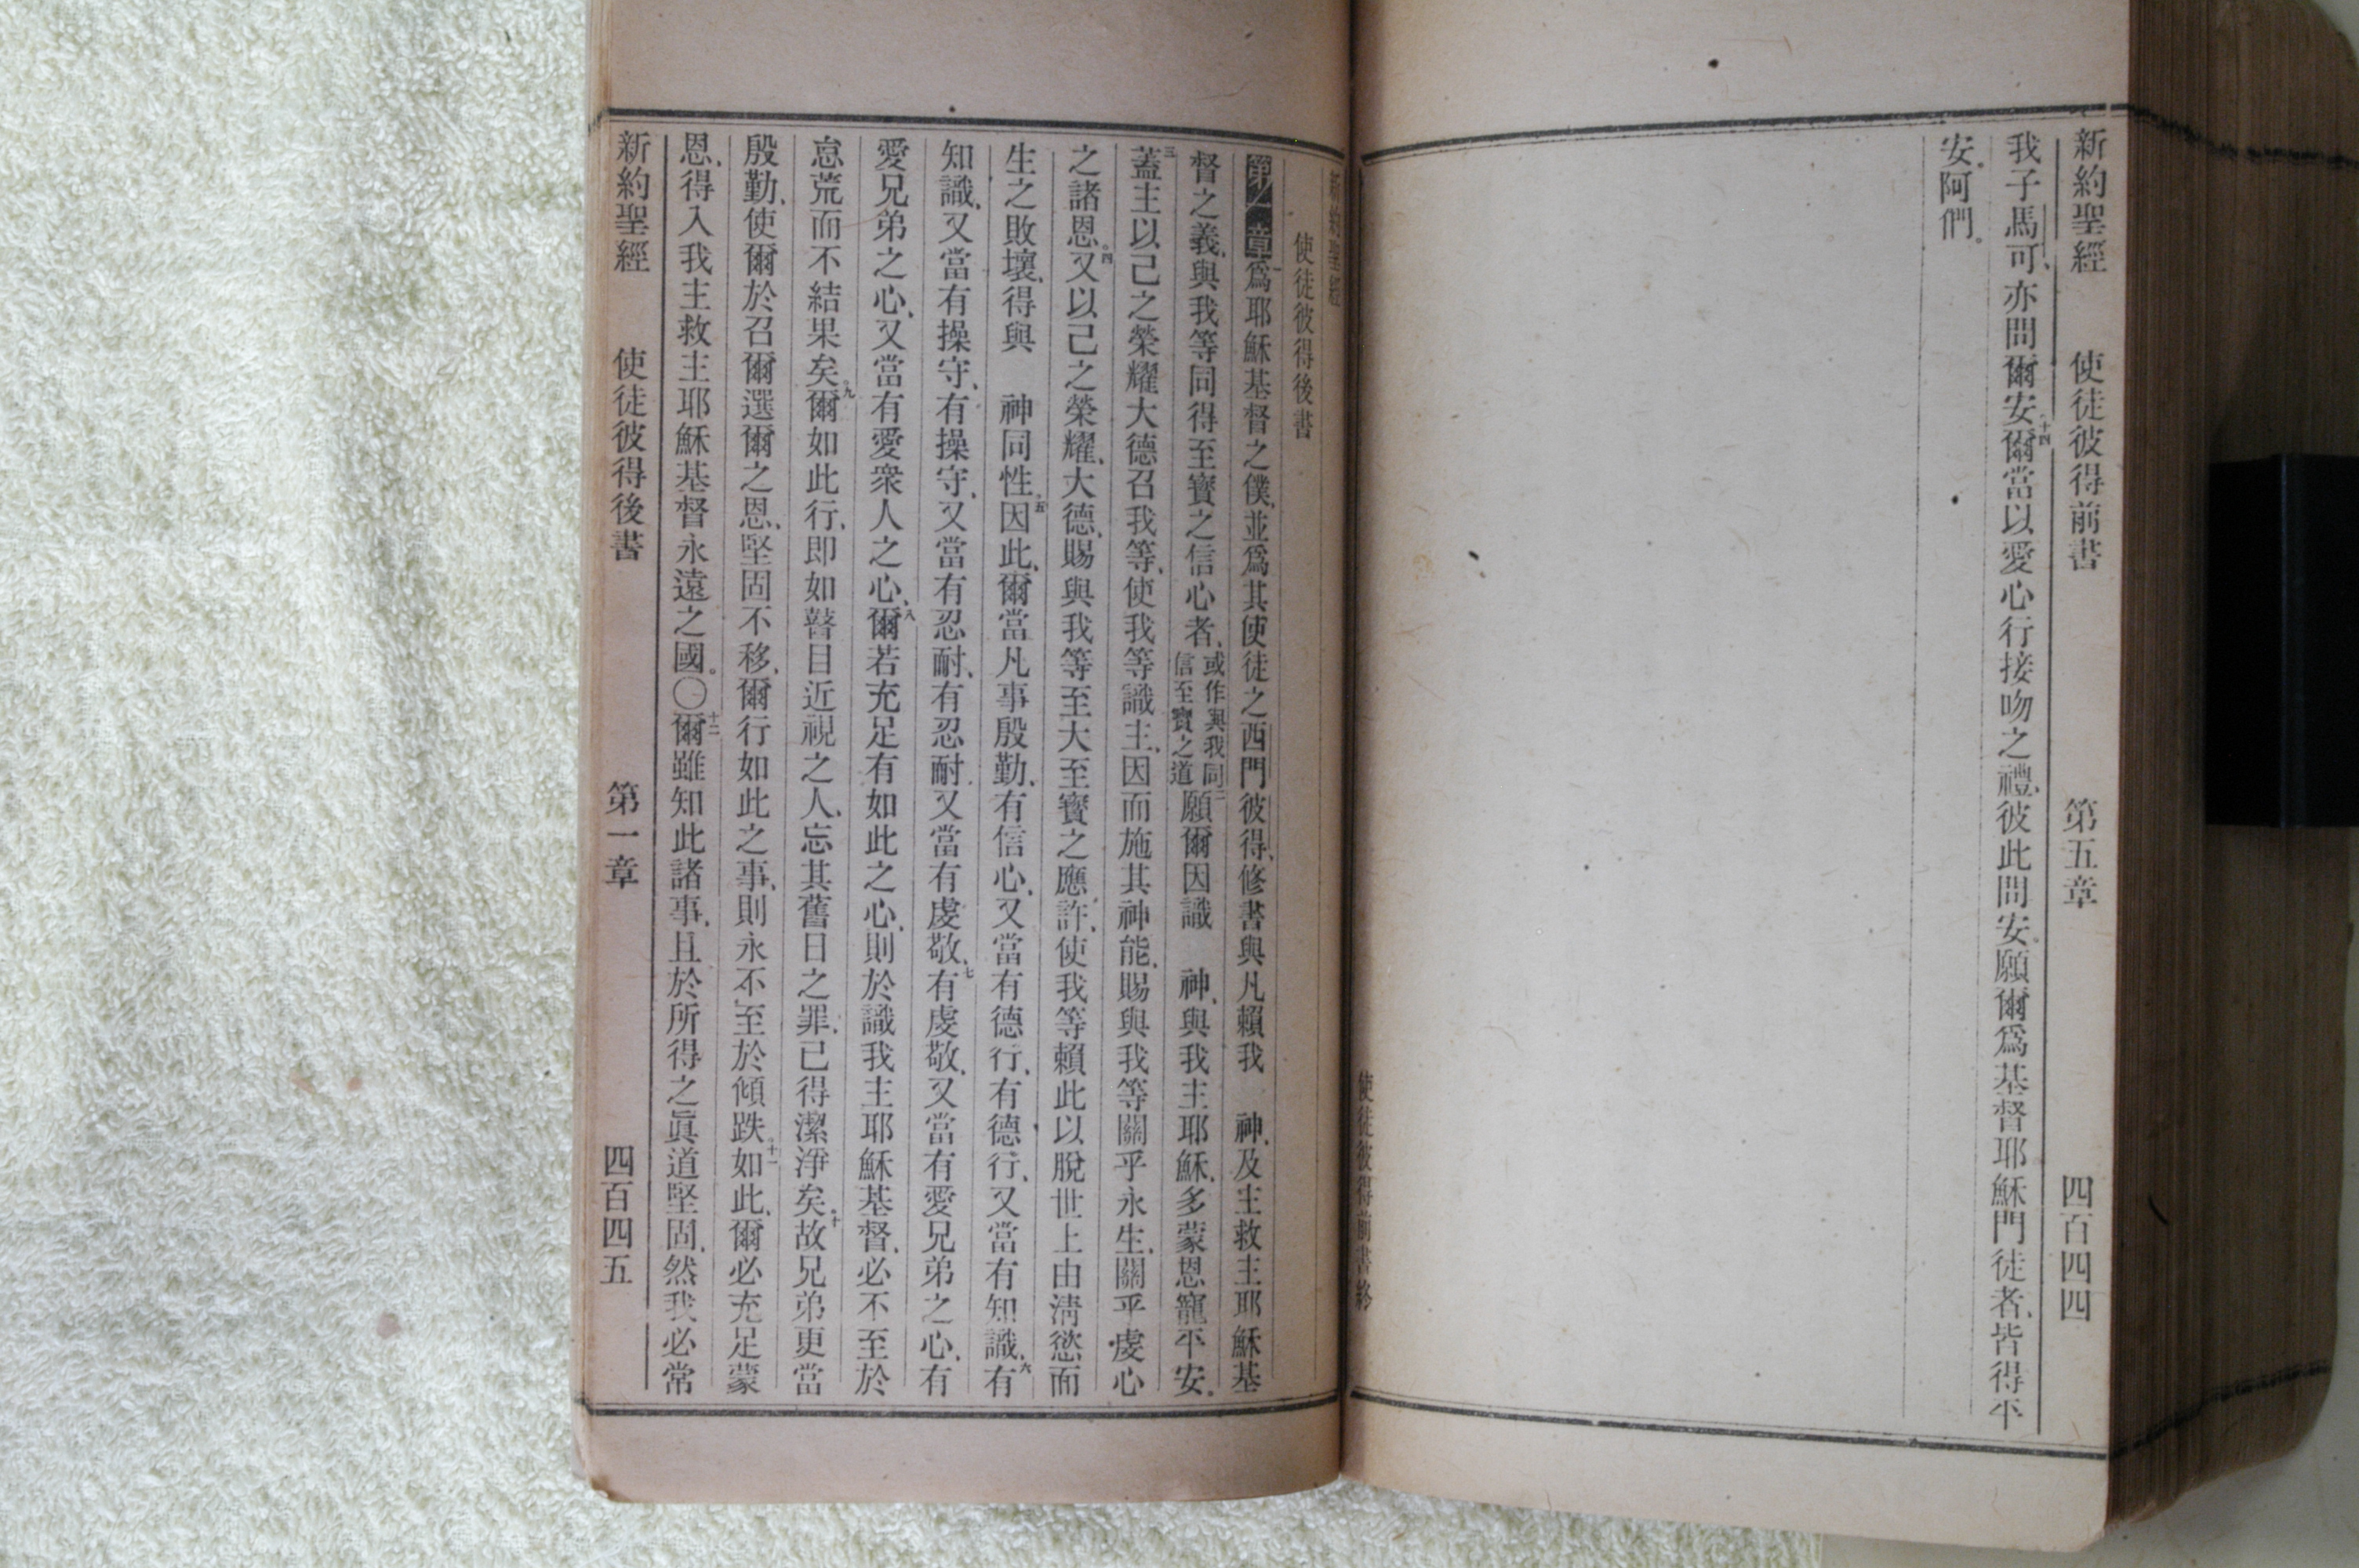 新約聖經　使徒彼得前書　第五章　四百四四
我子馬可、亦問爾安、十四爾當以愛心行接吻之禮、彼此問安。願爾爲基督耶穌門徒者、皆得平
安。阿們。
使徒彼得前書終
新約聖經
使徒彼得後書
第一章　一爲耶穌基督之僕、並爲其使徒之西門彼得、修書與凡賴我　神、及主救主耶穌基
督之義、與我等同得至寶之信心者、或作與我同信至寶之道二願爾因識　神、與我主耶穌、多蒙恩寵平安。
三蓋主以己之榮耀大德召我等、使我等識主、因而施其神能、賜與我等關乎永生、關乎虔心
之諸恩。四又以己之榮耀、大德、賜與我等至大至寶之應許、使我等賴此以脫世上由淸慾而
生之敗壞、得與　神同性。五因此、爾當凡事殷勤、有信心、又當有德行、有德行、又當有知識、六有
知識、又當有操守、有操守、又當有忍耐、有忍耐、又當有虔敬、七有虔敬、又當有愛兄弟之心、有
愛兄弟之心、又當有愛衆人之心、八爾若充足有如此之心、則於識我主耶穌基督、必不至於
怠荒而不結果矣。九爾如此行、即如瞽目近視之人、忘其舊日之罪、已得潔淨矣。十故兄弟更當
殷勤、使爾於召爾選爾之恩、堅固不移、爾行如此之事、則永不至於傾跌。十一如此、爾必充足蒙
恩、得入我主救主耶穌基督永遠之國。〇十二爾雖知此諸事、且於所得之眞道堅固、然我必常
新約聖經　使徒彼得後書　第一章　四百四五